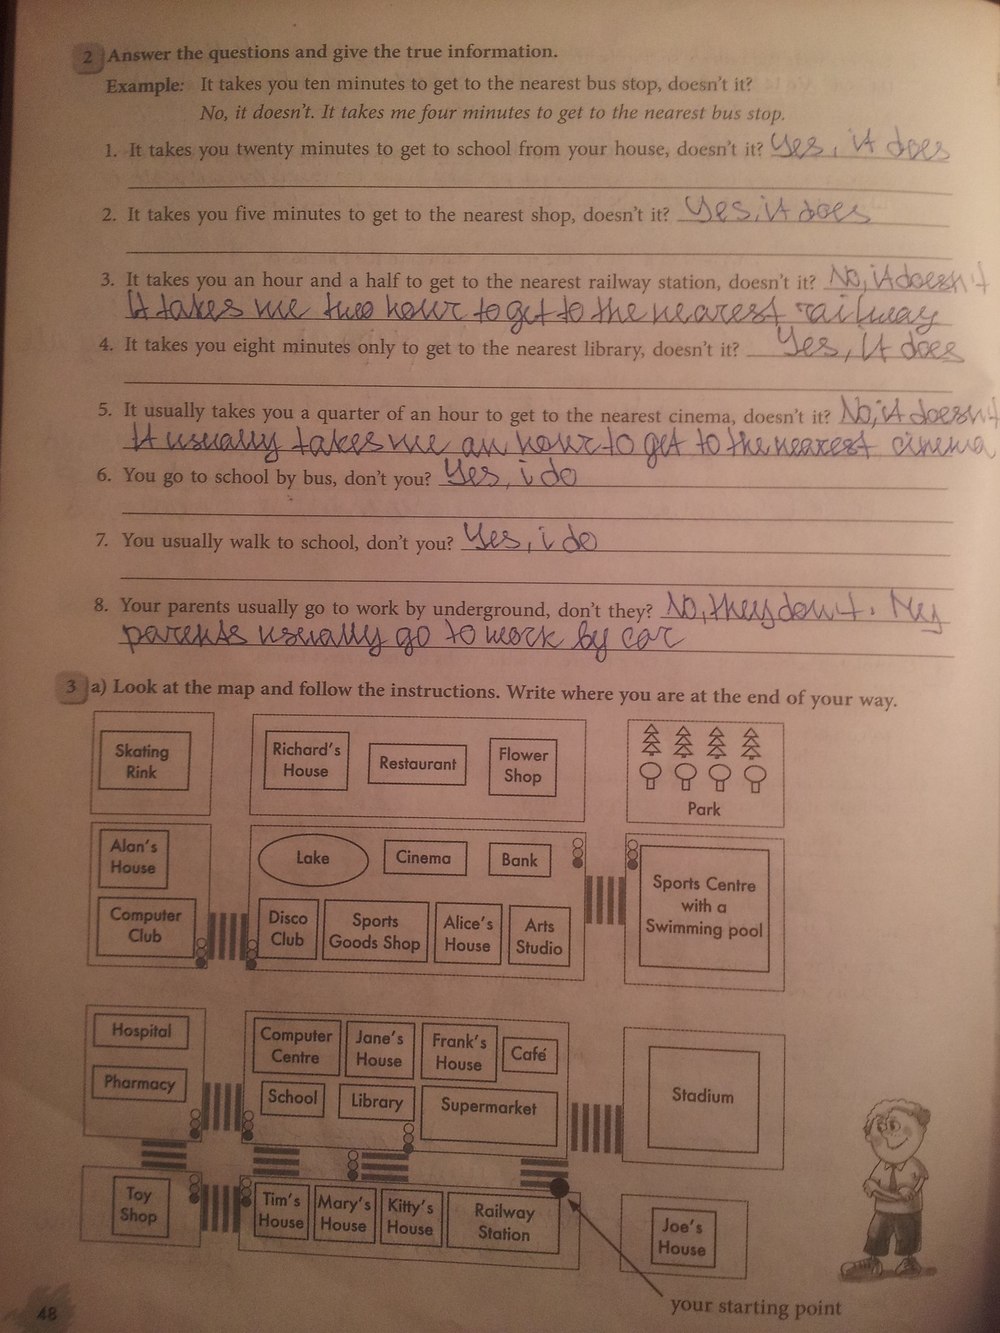 2 Answer the questions and give the true information.
Example: It takes you ten minutes to get to the nearest bus stop, doesn't it?
No, it doesn't. It takes me four minutes to get to the nearest bus stop.
1. It takes you twenty minutes to get to school from your house, doesn't it? Yes, it does
2. It takes you five minutes to get to the nearest shop, doesn't it? Yes, it does
3. It takes you an hour and a half to get to the nearest railway station, doesn't it? No, it doesn't
It takes me two hour to get to the nearest railway
4. It takes you eight minutes only to get to the nearest library, doesn't it? Yes, it does
5. It usually takes you a quarter of an hour to get to the nearest cinema, doesn't it? No, it doesn't
It usually takes me an hour to get to the nearest cinema
6. You go to school by bus, don't you? Yes, i do
7. You usually walk to school, don't you? Yes, i do
8. Your parents usually go to work by underground, don't they? No, they don't. My
parents usually go to work by car
3 a) Look at the map and follow the instructions. Write where you are at the end of your way.
Skating
Rink
Richard's
House
Restaurant
Flower
Shop
Park
Alan's
House
Lake
Cinema
Bank
Sports Centre
with a
Swimming pool
Computer
Club
Disco
Club
Sports
Goods Shop
Alice's
House
Arts
Studio
Hospital
Computer
Centre
Jane's
House
Frank's
House
Café
Stadium
Pharmacy
School
Library
Supermarket
Toy
Shop
Tim's
House
Mary's
House
Kitty's
House
Railway
Station
Joe's
House
your starting point
48